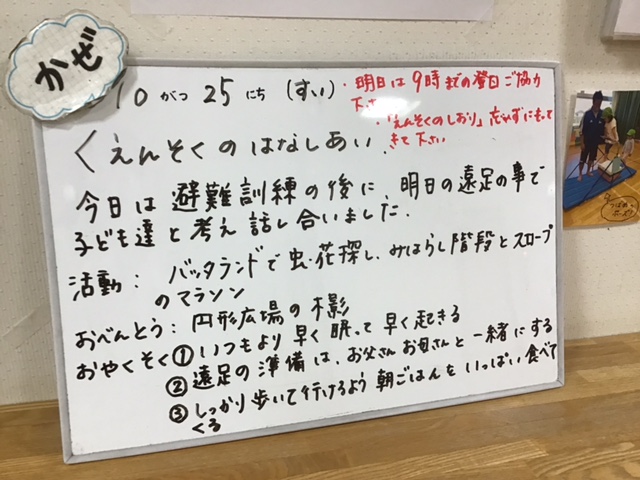 かぜ
10がつ25にち(すい)
・明日は9時までの登日ご協力
下さい
・「えんそくのしおり」忘れずにもって
きて下さい
くえんそくのはなしあい
今日は避難訓練の後に、明日の遠足の事で
子ども達と考え話し合いました。
活動：バッタランドで虫・花探し、みはらし階段とスロープ
のマラソン
おべんとう：円形広場の木影
おやくそく①いつもより早く眠って早く起きる
②遠足の準備は、お父さんお母さんと一緒にする
③しっかり歩いて行けるよう朝ごはんをいっぱい食べて
くる